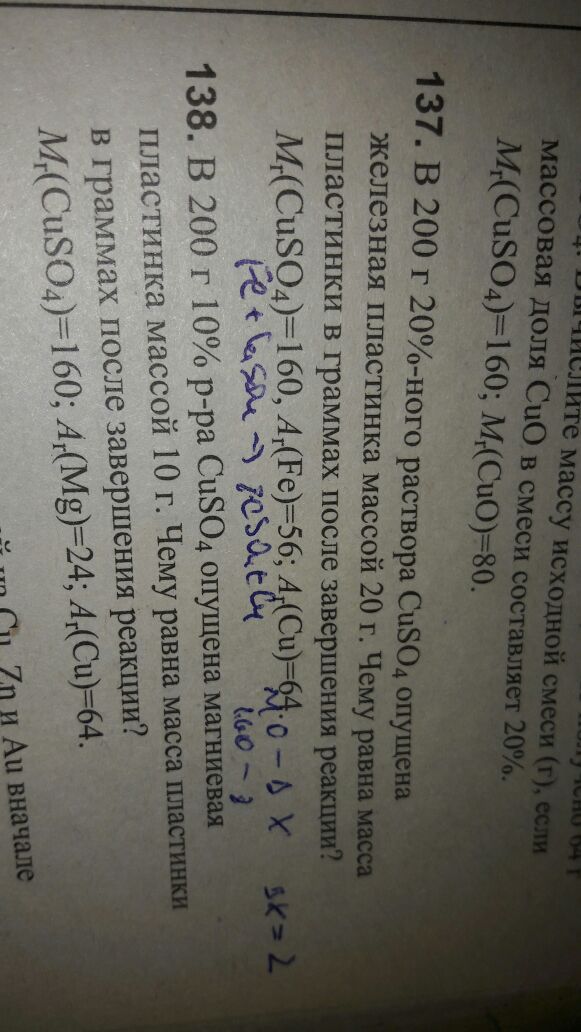 массовая доля CuO в смеси составляет 20%.
Mᵣ(CuSO₄)=160; Mᵣ(CuO)=80.
137. В 200 г 20%-ного раствора CuSO₄ опущена
железная пластинка массой 20 г. Чему равна масса
пластинки в граммах после завершения реакции?
Mᵣ(CuSO₄)=160, Aᵣ(Fe)=56; Aᵣ(Cu)=64.
138. В 200 г 10% р-ра CuSO₄ опущена магниевая
пластинка массой 10 г. Чему равна масса пластинки
в граммах после завершения реакции?
Mᵣ(CuSO₄)=160; Aᵣ(Mg)=24; Aᵣ(Cu)=64.
Cu, Zn и Au вначале